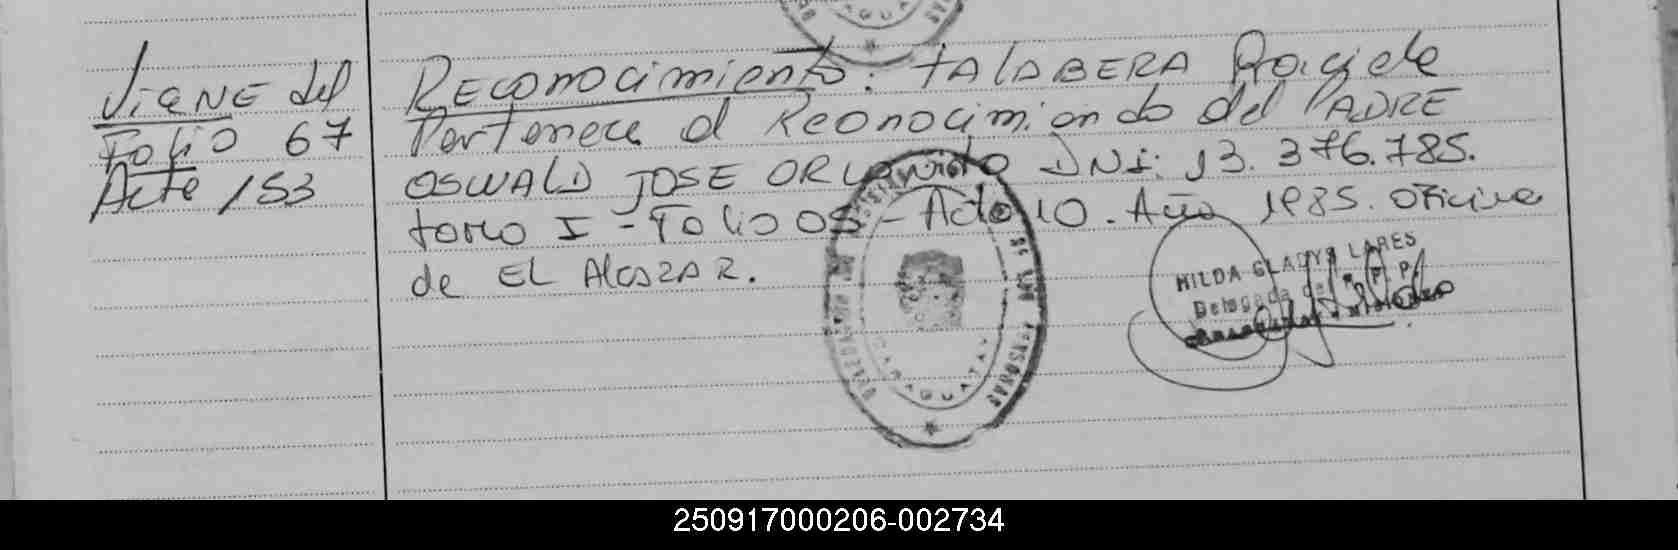 Viene del
Folio 67
Acte 153
Reconocimiento: TALABERA Graciela
Pertenece al Reconocimiendo del PADRE
OSWALD JOSE ORLANDO DNI: 13.376.785.
tomo I - Folio 05 - Acta 10. Año 1985. oficina
de EL Alcazar.
HILDA GLADYS LARES
Delegada del R. P. P.
CARAGUATAY
250917000206-002734